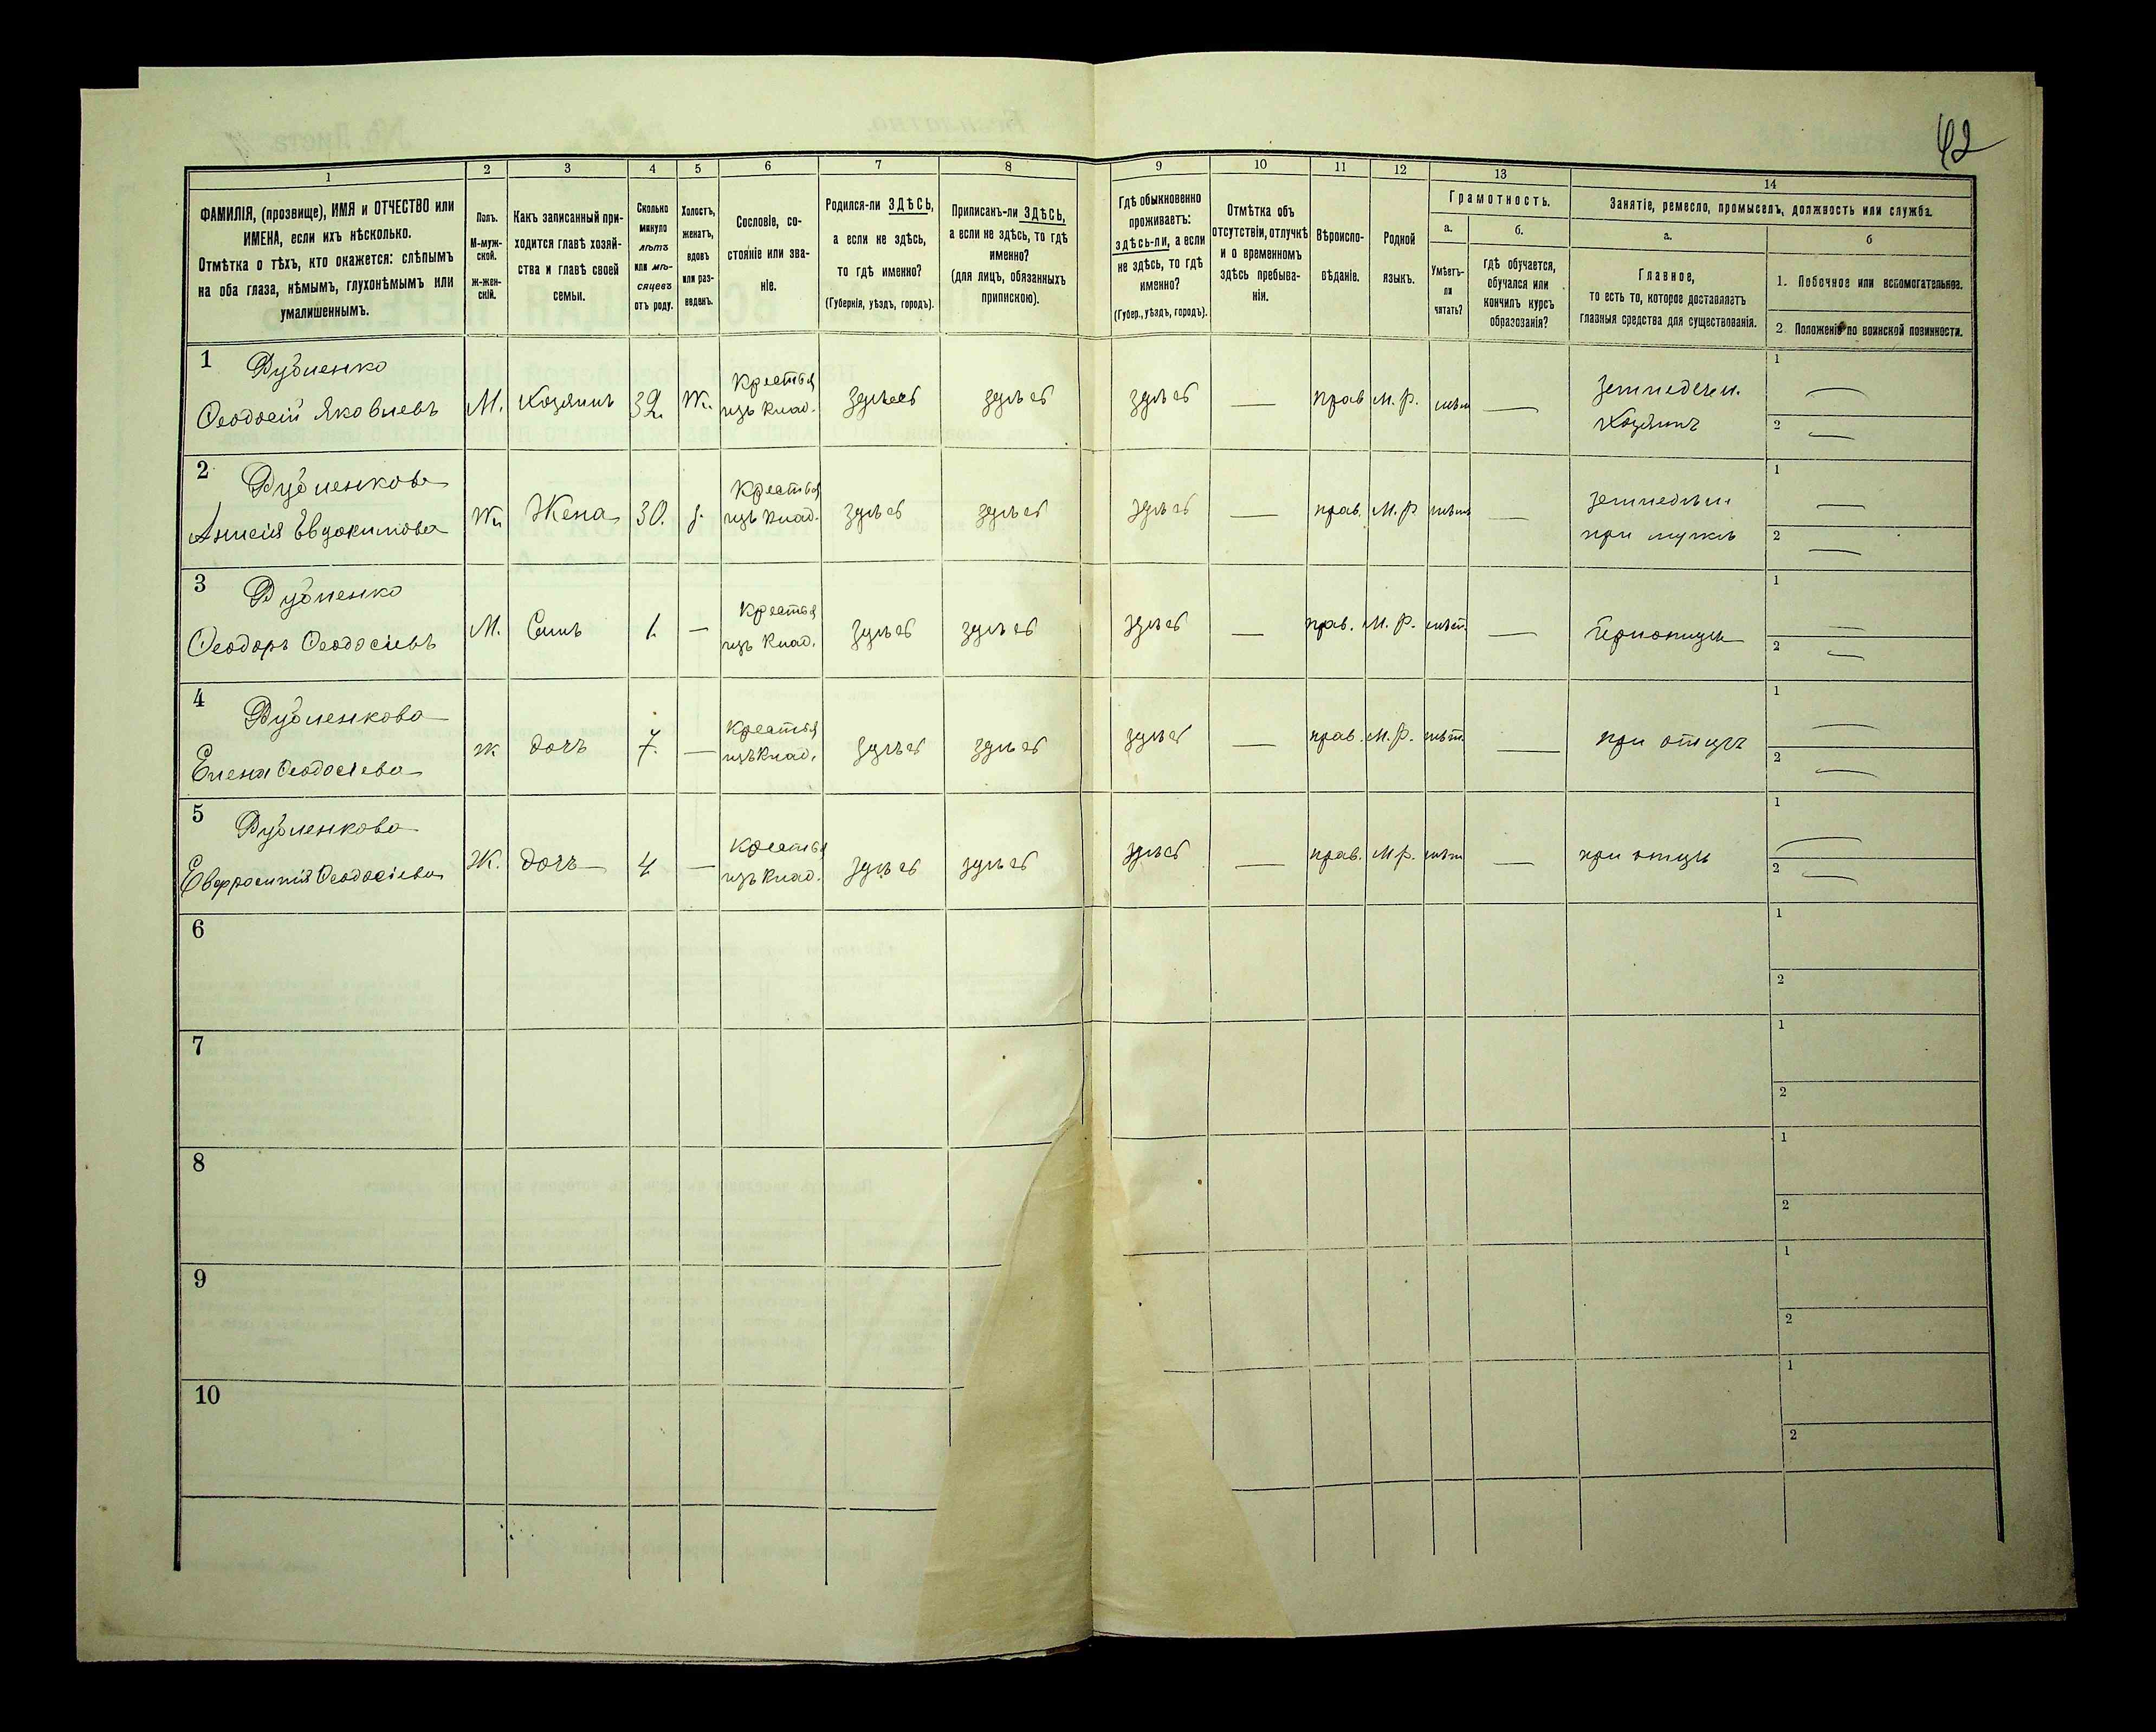 42
1
2
3
4
5
6
7
8
9
10
11
12
13
14
ФАМИЛІЯ, (прозвище), ИМЯ и ОТЧЕСТВО или
ИМЕНА, если ихъ нѣсколько.
Отмѣтка о тѣхъ, кто окажется: слѣпымъ
на оба глаза, нѣмымъ, глухонѣмымъ или
умалишеннымъ.
Полъ.
М-муж-
ской.
Ж-жен-
скій.
Какъ записанный при-
ходится главѣ хозяй-
ства и главѣ своей
семьи.
Сколько
минуло
лѣтъ
или мѣ-
сяцевъ
отъ роду.
Холостъ,
женатъ,
вдовъ
или раз-
веденъ.
Сословіе, со-
стояніе или зва-
ніе.
Родился-ли ЗДѢСЬ,
а если не здѣсь,
то гдѣ именно?
(Губернія, уѣздъ, городъ).
Приписанъ-ли ЗДѢСЬ,
а если не здѣсь, то гдѣ
именно?
(для лицъ, обязанныхъ
припискою).
Гдѣ обыкновенно
проживаетъ:
здѣсь-ли, а если
не здѣсь, то гдѣ
именно?
(Губер., уѣздъ, городъ).
Отмѣтка объ
отсутствіи, отлучкѣ
и о временномъ
здѣсь пребыва-
ніи.
Вѣроиспо-
вѣданіе.
Родной
языкъ.
Грамотность.
а.
Умѣетъ-
ли
читать?
б.
гдѣ обучается,
обучался или
кончилъ курсъ
образованія?
Занятіе, ремесло, промыселъ, должность или служба.
а.
Главное,
то есть то, которое доставляетъ
главныя средства для существованія.
б
1. Побочное или вспомогательное.
2. Положеніе по воинской повинности.
1 Дубленко
Ѳеодосій Яковлевъ М. Хозяинъ 32 ж. Крестья изъ влад. здѣсь здѣсь здѣсь — прав м. р. нѣт — земледѣл. Хозяинъ 1 — 2 —
2 Дубленкова
Анисія Евдокимова ж Жена 30. з. Крестья изъ влад. здѣсь здѣсь здѣсь — прав. м. р нѣтъ — земледѣл. при мужѣ 1 — 2 —
3 Дубленко
Ѳеодоръ Ѳеодосіевъ М. Сынъ 1. — Крестья изъ влад. здѣсь здѣсь здѣсь — прав. м. р. нѣт. — При отцѣ 1 — 2 —
4 Дубленкова
Елена Ѳеодосіева ж дочь 7. — Крестья изъ влад. здѣсь здѣсь здѣсь — прав. м. р. нѣт. — при отцѣ 1 — 2 —
5 Дубленкова
Евфросинія Ѳеодосіева Ж. дочь 4 — Крестья изъ влад. здѣсь здѣсь здѣсь — прав. м р. нѣт — при отцѣ 1 — 2 —
6 1
2
7 1
2
8 1
2
9 1
2
10 1
2